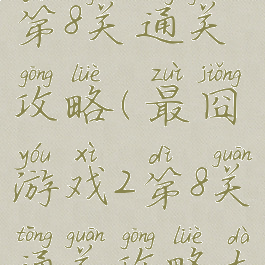 第8关通关
gōng lüè zuì jiǒng
攻略(最囧
yóu xì dì guān
游戏2第8关
tōng guān gōng lüè dà
通关攻略大